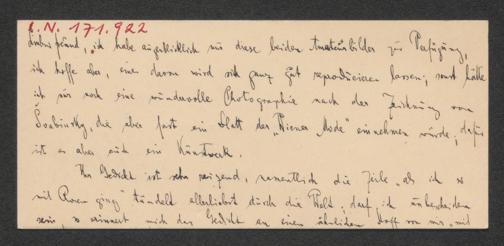 I. N. 171.922
ich habe augenblicklich nur diese beiden Amateurbilder zur Verfügung,
ich hoffe aber, eines davon wird sich ganz gut reproducieren lassen; sonst hätte
ich nur noch eine wundervolle Photographie nach der Zeichnung von
Švabinsky, die aber fast ein Blatt der „Wiener Mode" einnehmen würde, dafür
ist es aber auch ein Kunstwerk.
Ihr Gedicht ist sehr reizend, namentlich die Zeile „als ich so
mit Rosen ging" tändelt allerliebst durch die Welt; darf ich unbescheiden
sein, so erinnert mich das Gedicht an einen ähnlichen Stoff von mir, mit